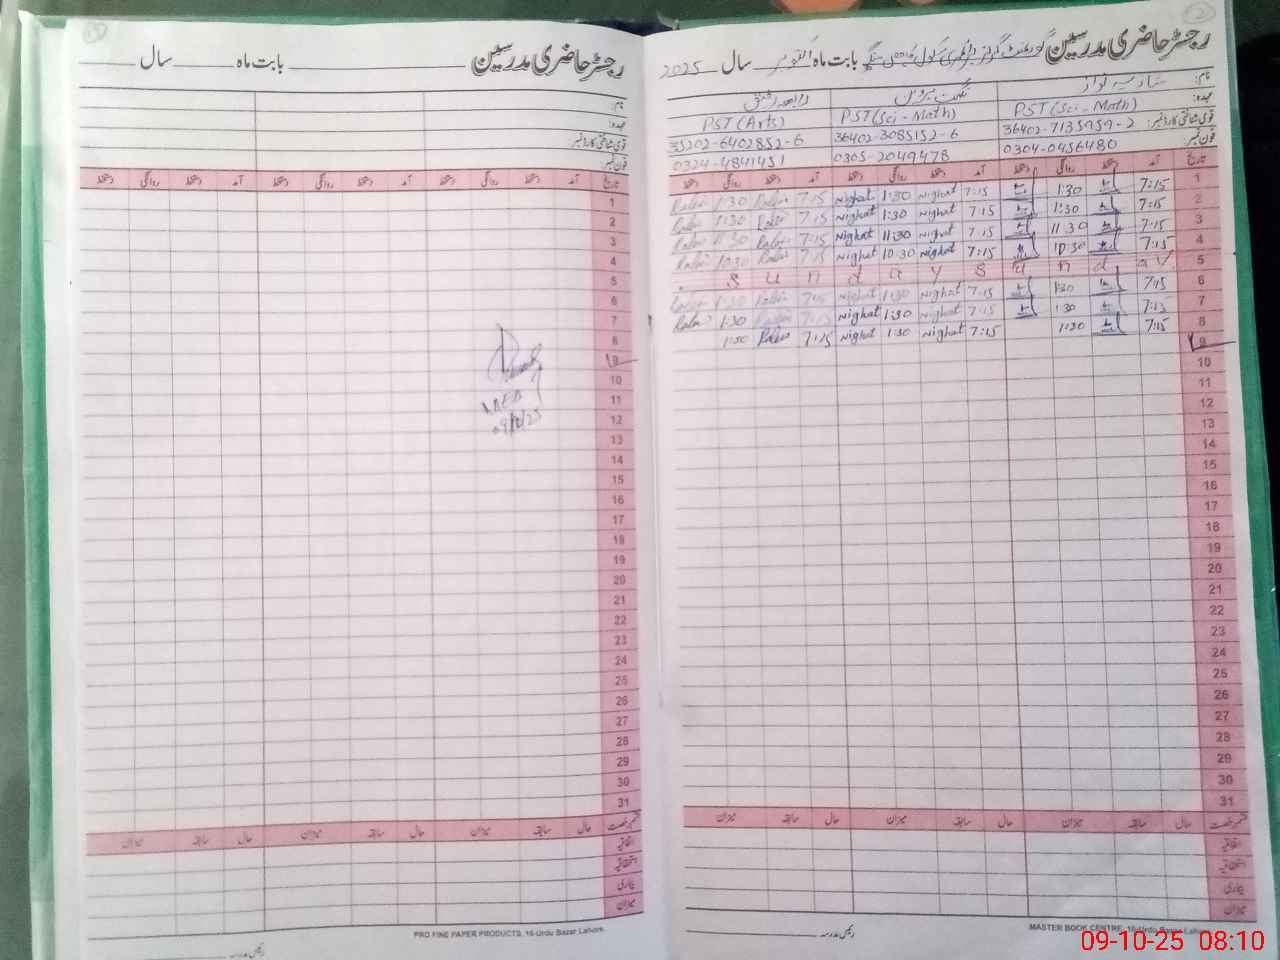 رجسٹر حاضری مدرسین بابت ماہ سال
نام:
عہدہ:
قومی شناختی کارڈ نمبر:
فون نمبر:
تاریخ آمد دستخط روانگی دستخط آمد دستخط روانگی دستخط آمد دستخط روانگی دستخط
1
2
3
4
5
6
7
8
9
10
11
12
13
14
15
16
17
18
19
20
21
22
23
24
25
26
27
28
29
30
31
حال سابقہ میزان حال سابقہ میزان حال سابقہ میزان
اتفاقیہ
استحقاقیہ
بیماری
میزان
PRO FINE PAPER PRODUCTS, 16-Urdu Bazar Lahore.
رئیس مدرسہ
رجسٹر حاضری مدرسین گورنمنٹ گرلز پرائمری سکول بابت ماہ اکتوبر سال 2025
نام: نواز نگہت پروین رابعہ
عہدہ: PST (Sci - Math) PST (Sci - Math) PST (Arts)
قومی شناختی کارڈ نمبر: 36402-7135959-2 36402-3085152-6 35202-6402852-6
فون نمبر: 0304-0456480 0305-2049478 0324-4841451
تاریخ آمد دستخط روانگی دستخط آمد دستخط روانگی دستخط آمد دستخط روانگی دستخط
1 7:15 1:30 7:15 Nighat 1:30 Nighat 7:15 1:30
2 7:15 1:30 7:15 Nighat 1:30 Nighat 7:15 1:30
3 7:15 11:30 7:15 Nighat 11:30 Nighat 7:15 11:30
4 7:15 10:30 7:15 Nighat 10:30 Nighat 7:15 10:30
5 S u n d a y S u n d a y
6 7:15 1:30 7:15 Nighat 1:30 Nighat 7:15 1:30
7 7:15 1:30 7:15 Nighat 1:30 Nighat 7:15 1:30
8 7:15 1:30 7:15 Nighat 1:30 Nighat 7:15 1:30
9
10
11
12
13
14
15
16
17
18
19
20
21
22
23
24
25
26
27
28
29
30
31
حال سابقہ میزان حال سابقہ میزان حال سابقہ میزان
اتفاقیہ
استحقاقیہ
بیماری
میزان
MASTER BOOK CENTRE, 16-Urdu Bazar Lahore
رئیس مدرسہ
09-10-25 08:10